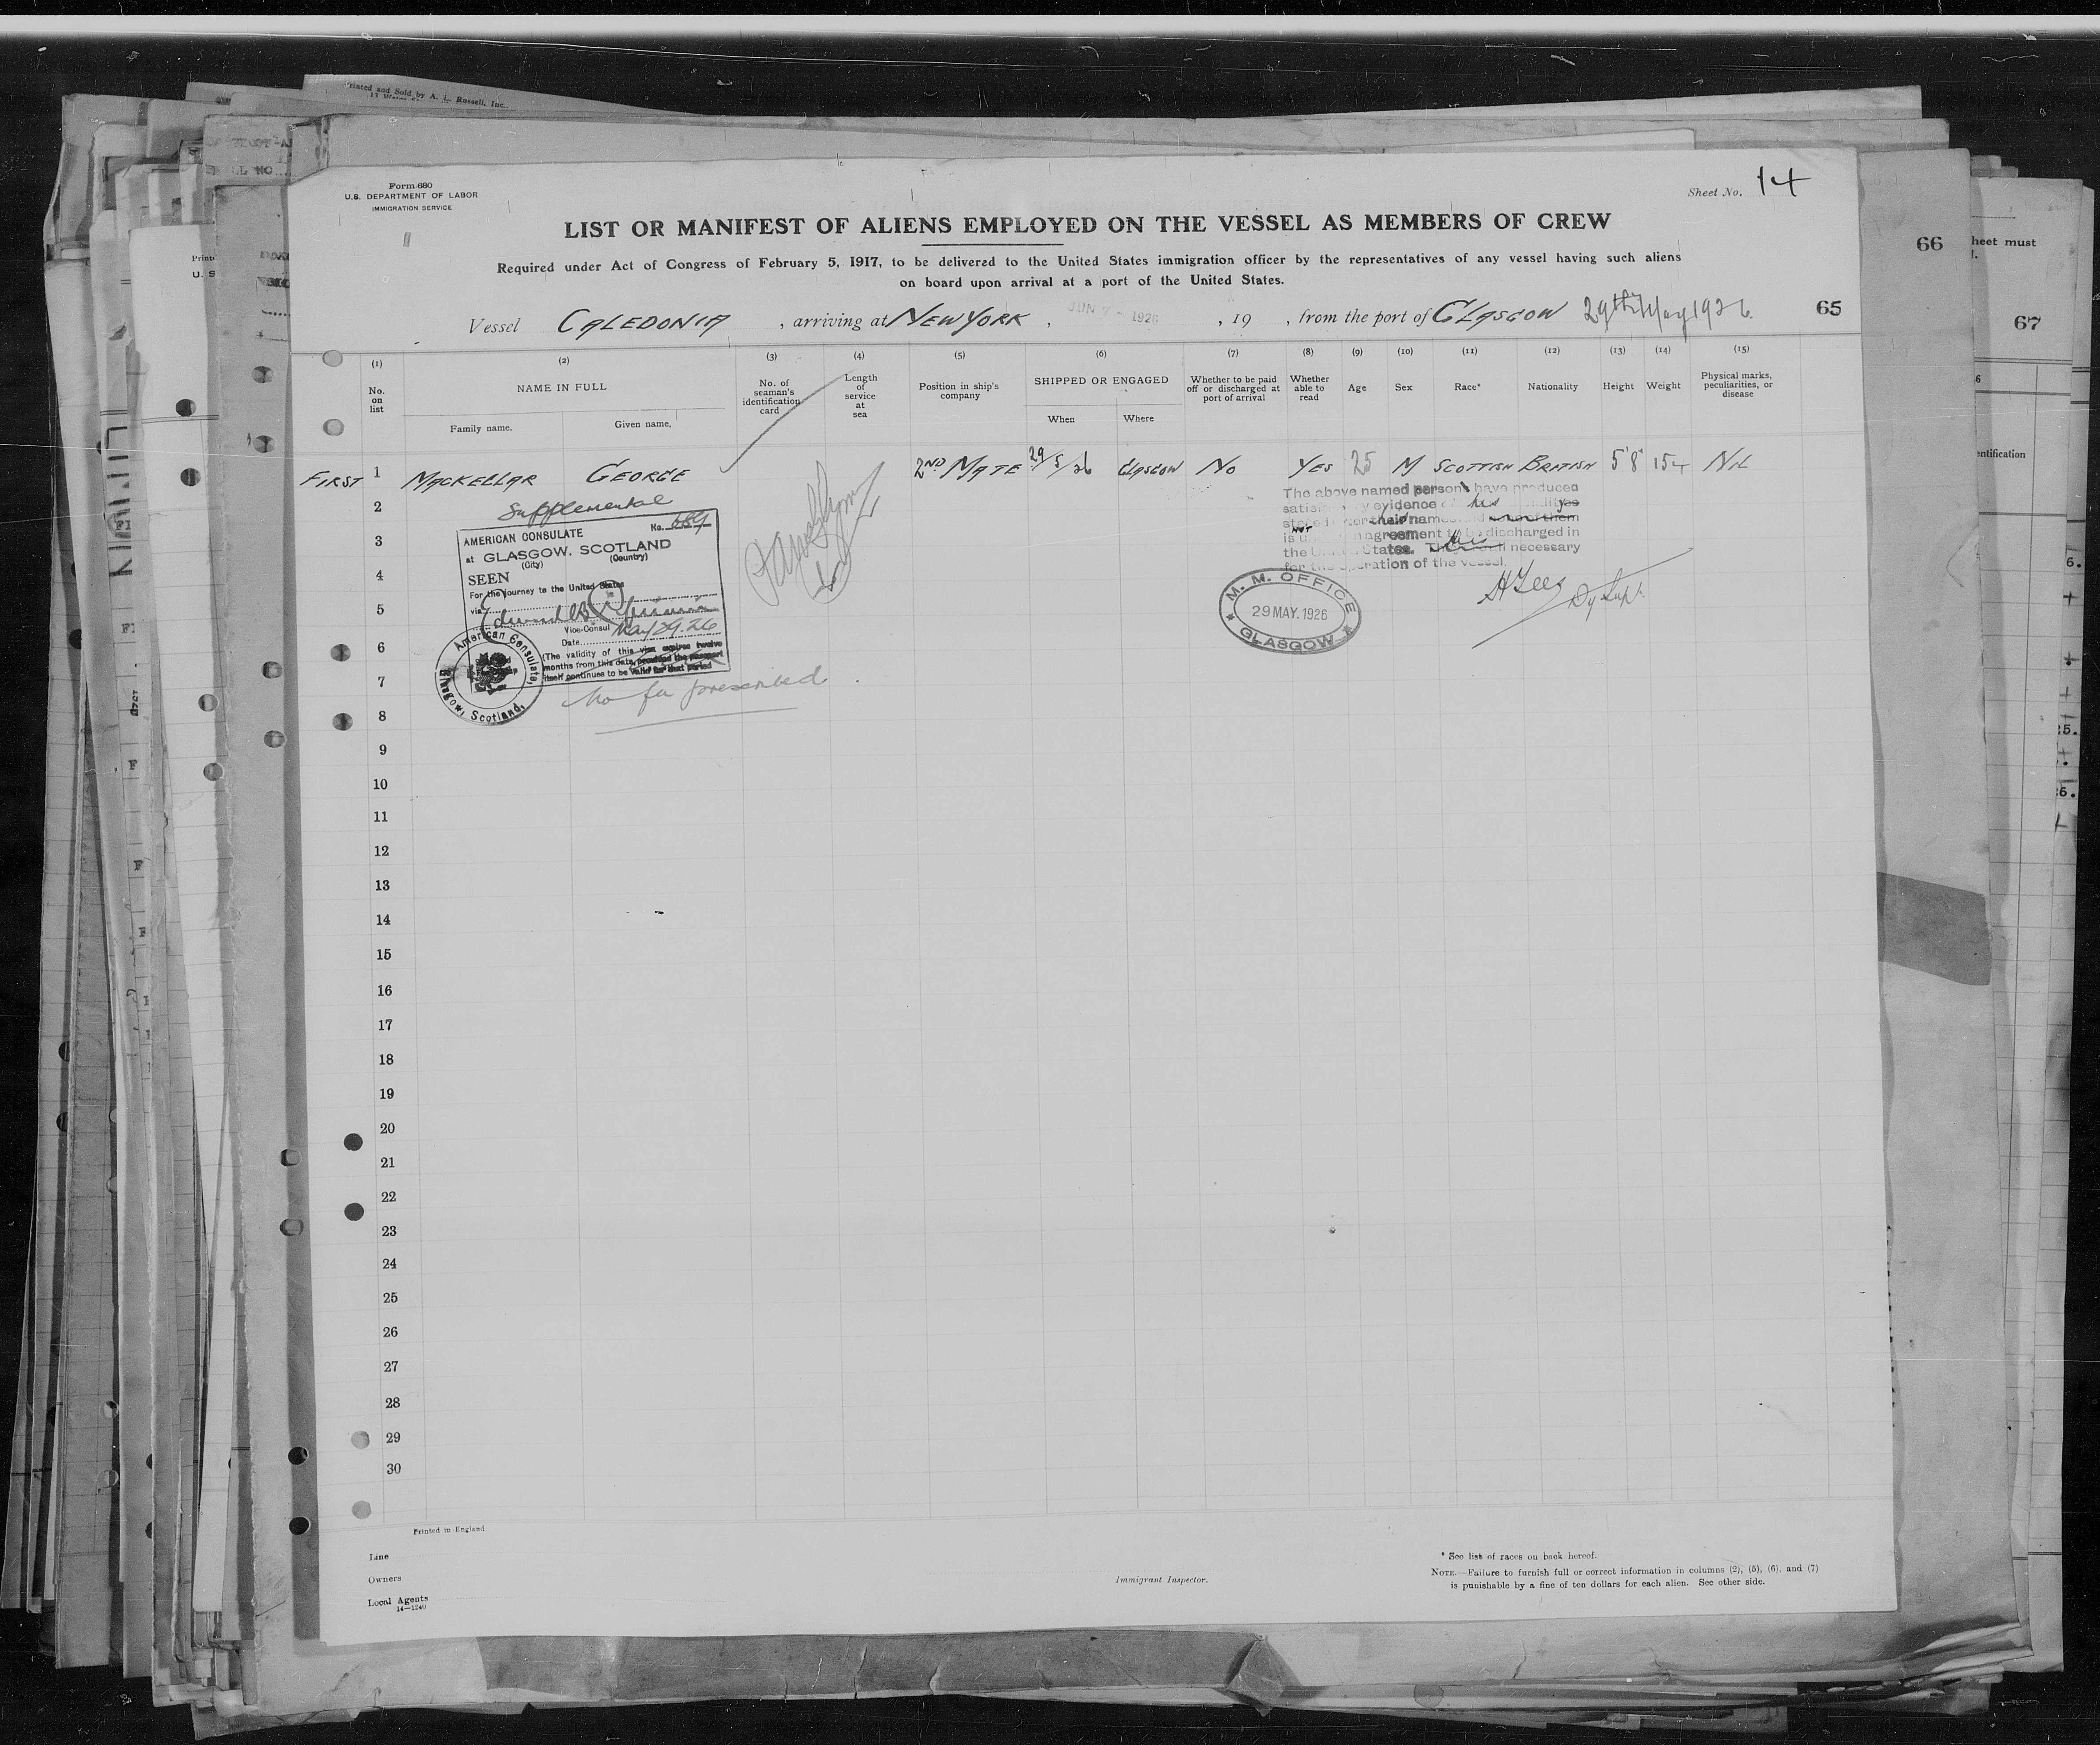 Printed and Sold by A. L. Russell, Inc.
Form 680
U.S. DEPARTMENT OF LABOR
IMMIGRATION SERVICE
Sheet No. 14
LIST OR MANIFEST OF ALIENS EMPLOYED ON THE VESSEL AS MEMBERS OF CREW
66
heet must
Required under Act of Congress of February 5, 1917, to be delivered to the United States immigration officer by the representatives of any vessel having such aliens
on board upon arrival at a port of the United States.
Vessel CALEDONIA, arriving at NEW YORK, JUN 7 - 1926, 19 , from the port of GLASGOW 29th May 1926.
65
67
(1) (2) (3) (4) (5) (6) (7) (8) (9) (10) (11) (12) (13) (14) (15)
No. on list
NAME IN FULL
Family name. Given name.
No. of seaman's identification card
Length of service at sea
Position in ship's company
SHIPPED OR ENGAGED
When Where
Whether to be paid off or discharged at port of arrival
Whether able to read
Age
Sex
Race*
Nationality
Height
Weight
Physical marks, peculiarities, or disease
entification
FIRST 1 MACKELLAR GEORGE 2ND MATE 29/5/26 GLASGOW NO YES 25 M SCOTTISH BRITISH 5'8" 154 NIL
Supplemental
No. 689
AMERICAN CONSULATE
at GLASGOW, SCOTLAND
(City) (Country)
SEEN
For the journey to the United States
via
Vice-Consul
Date May 29. 26
(The validity of this visa expires twelve
months from this date, provided the passport
itself continues to be valid for that period
American Consulate,
Glasgow, Scotland.
No fee prescribed
The above named persons have produced
evidence his
their names none of them
is not agreement to be discharged in
the United States. necessary
for the operation of the vessel.
M. M. OFFICE
29 MAY. 1926
GLASGOW
H Lees
Dy Supt.
2
3
4
5
6
7
8
9
10
11
12
13
14
15
16
17
18
19
20
21
22
23
24
25
26
27
28
29
30
Printed in England
Line
Owners
Local Agents
14—1240
Immigrant Inspector.
* See list of races on back hereof.
NOTE.—Failure to furnish full or correct information in columns (2), (5), (6), and (7)
is punishable by a fine of ten dollars for each alien. See other side.